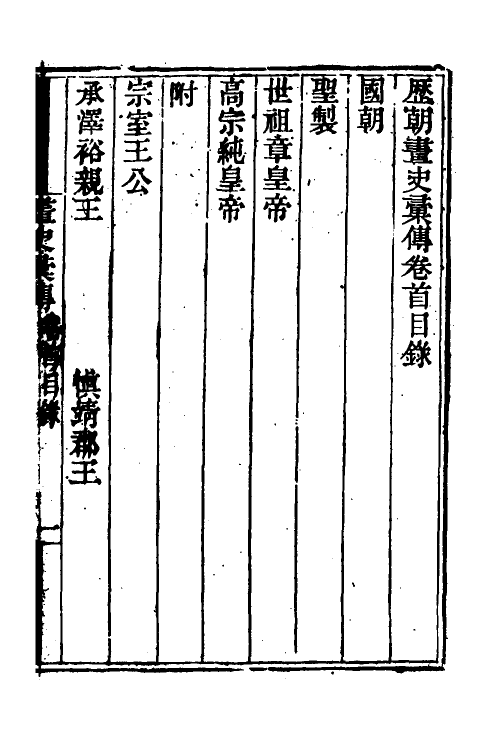 歷朝畫史彙傳卷首目錄
國朝
聖製
世祖章皇帝
高宗純皇帝
附
宗室王公
承澤裕親王　慎靖郡王
畫史彙傳　卷首目錄　一